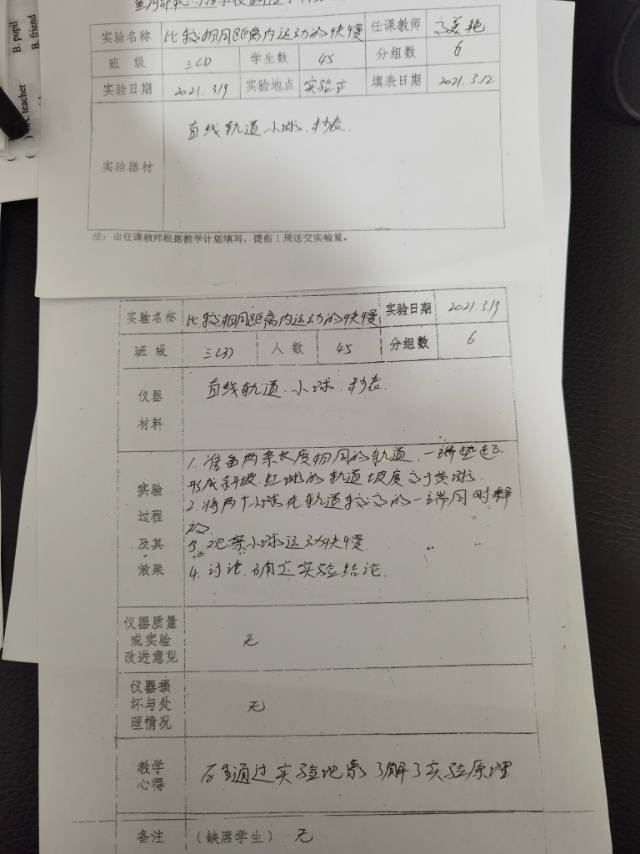 B. pupil
B. friend
teacher
实验名称 比较相同距离内运动的快慢 任课教师
班 级 三(3) 学生数 45 分组数 6
实验日期 2021.3.19 实验地点 实验室 填表日期 2021.3.12
实验器材 直线轨道.小球.秒表.
注：由任课教师根据教学计划填写，提前1周送交实验室。
实验名称 比较相同距离内运动的快慢 实验日期 2021.3.19
班 级 三(3) 人 数 45 分组数 6
仪器 直线轨道.小球.秒表.
材料
1.准备两条长度相同的轨道.一端垫起
实验 形成斜坡.红球的轨道坡度高于黄球.
过程 2.将两个小球在轨道较高的一端同时释
放.
及其 3.观察小球运动快慢.
效果 4.讨论.确定实验结论.
仪器质量
或实验 无
改进意见
仪器损
坏与处 无
理情况
教学 通过实验现象了解了实验原理
心得
备注 (缺席学生) 无